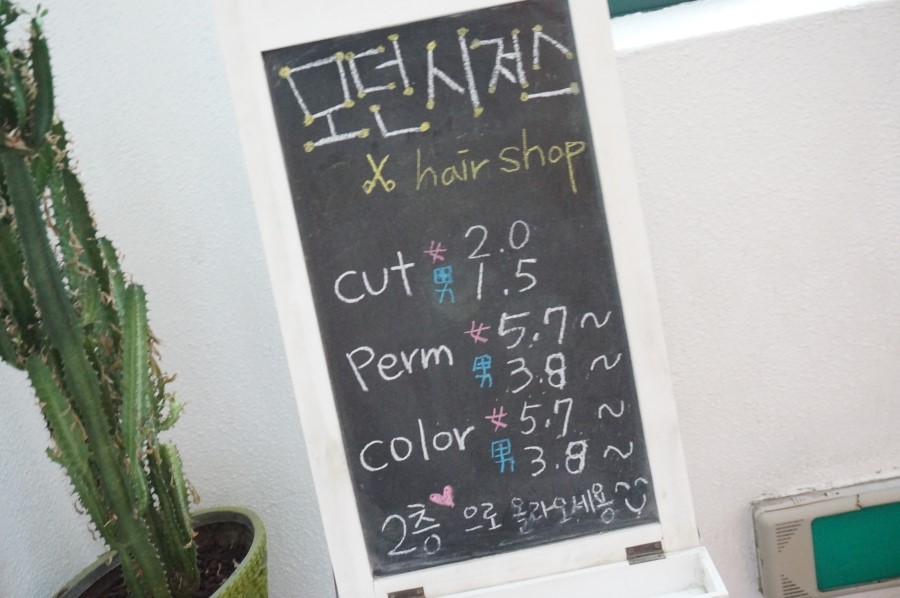 모던시저스
hair shop
cut 女 2.0
男 1.5
Perm 女 5.7 ~
男 3.8 ~
color 女 5.7 ~
男 3.8 ~
2층으로 올라오세용^^